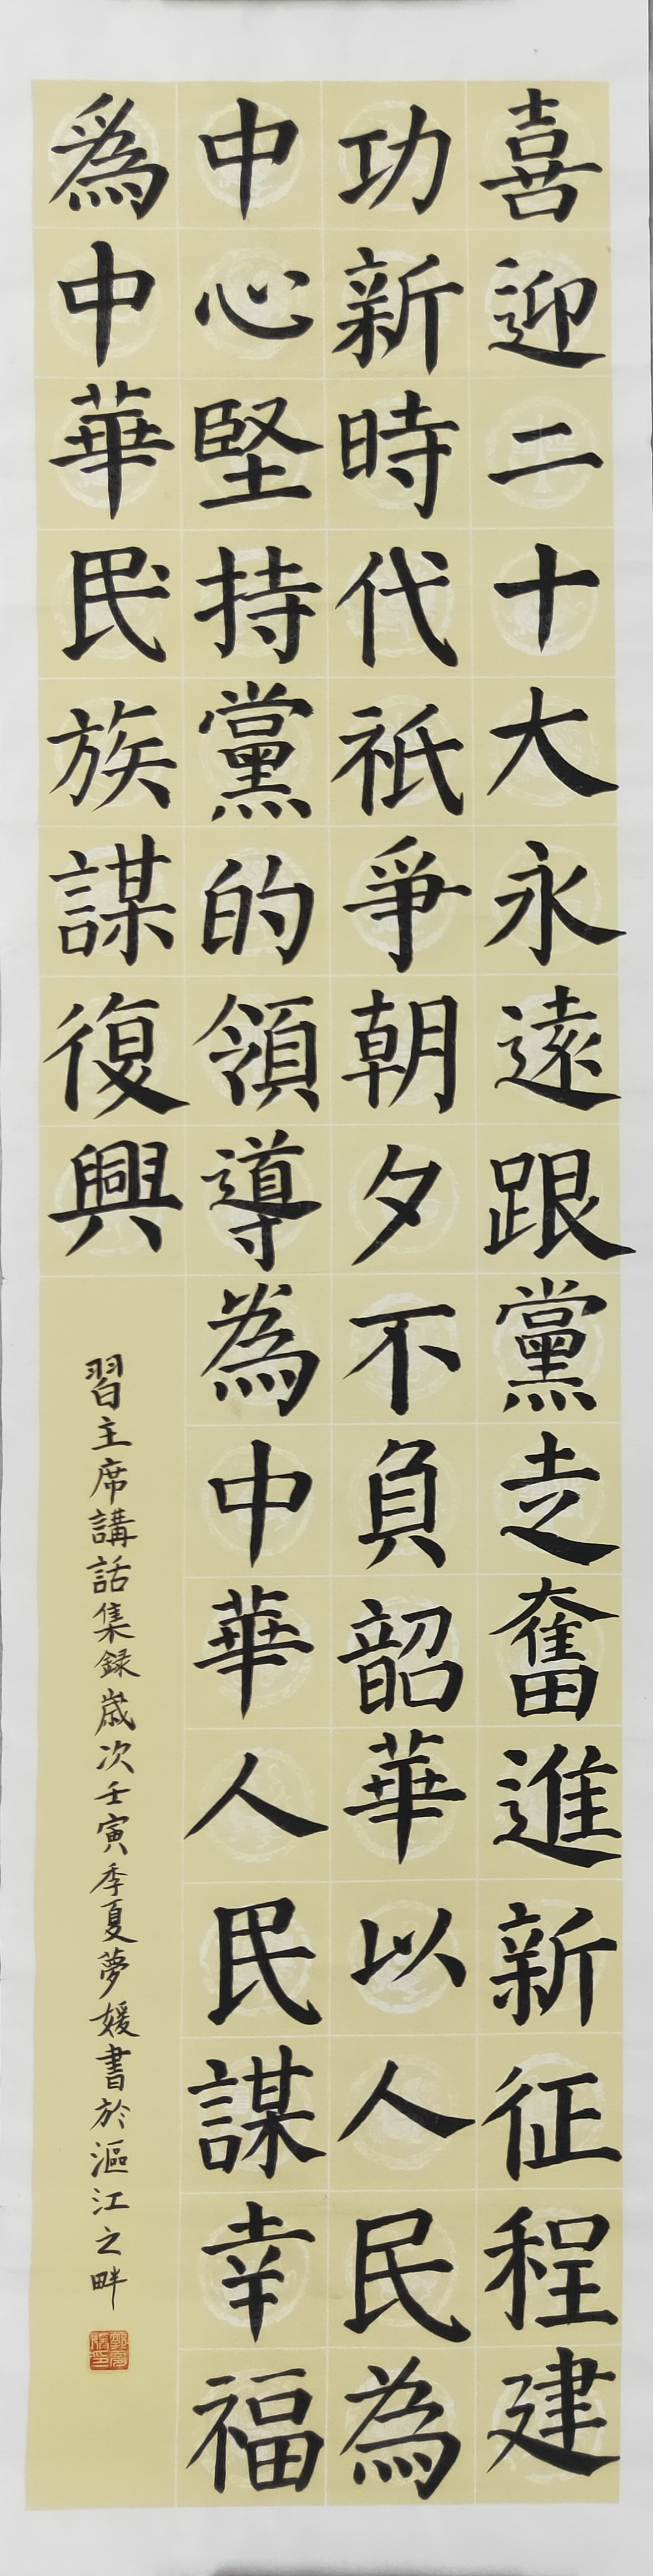 喜迎二十大永遠跟黨走奮進新征程建
功新時代祇爭朝夕不負韶華以人民為
中心堅持黨的領導為中華人民謀幸福
為中華民族謀復興
習主席講話集録歲次壬寅季夏夢媛書於漚江之畔